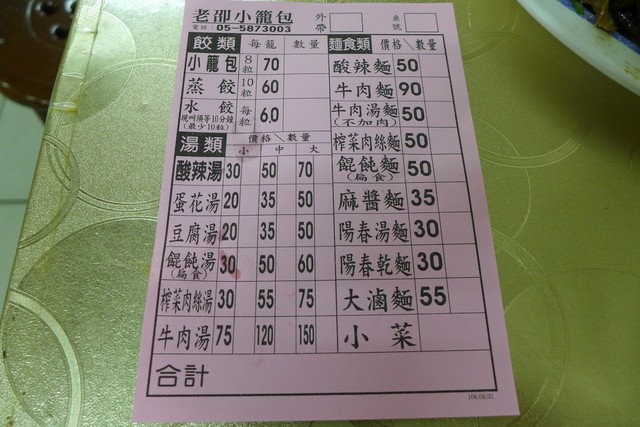 老邵小籠包 外帶 桌號
電話:05-5873003
餃類 每籠 數量 麵食類 價格 數量
小籠包 8粒 70 酸辣麵 50
蒸餃 10粒 60 牛肉麵 90
水餃 現叫須等10分鐘 (最少10粒) 每粒 6.0 牛肉湯麵 (不加肉) 50
湯類 價格/數量 小 中 大 榨菜肉絲麵 50
酸辣湯 30 50 70 餛飩麵 (扁食) 50
蛋花湯 20 35 50 麻醬麵 35
豆腐湯 20 35 50 陽春湯麵 30
餛飩湯 (扁食) 30 50 60 陽春乾麵 30
榨菜肉絲湯 30 55 75 大滷麵 55
牛肉湯 75 120 150 小菜
合計
106.06.01